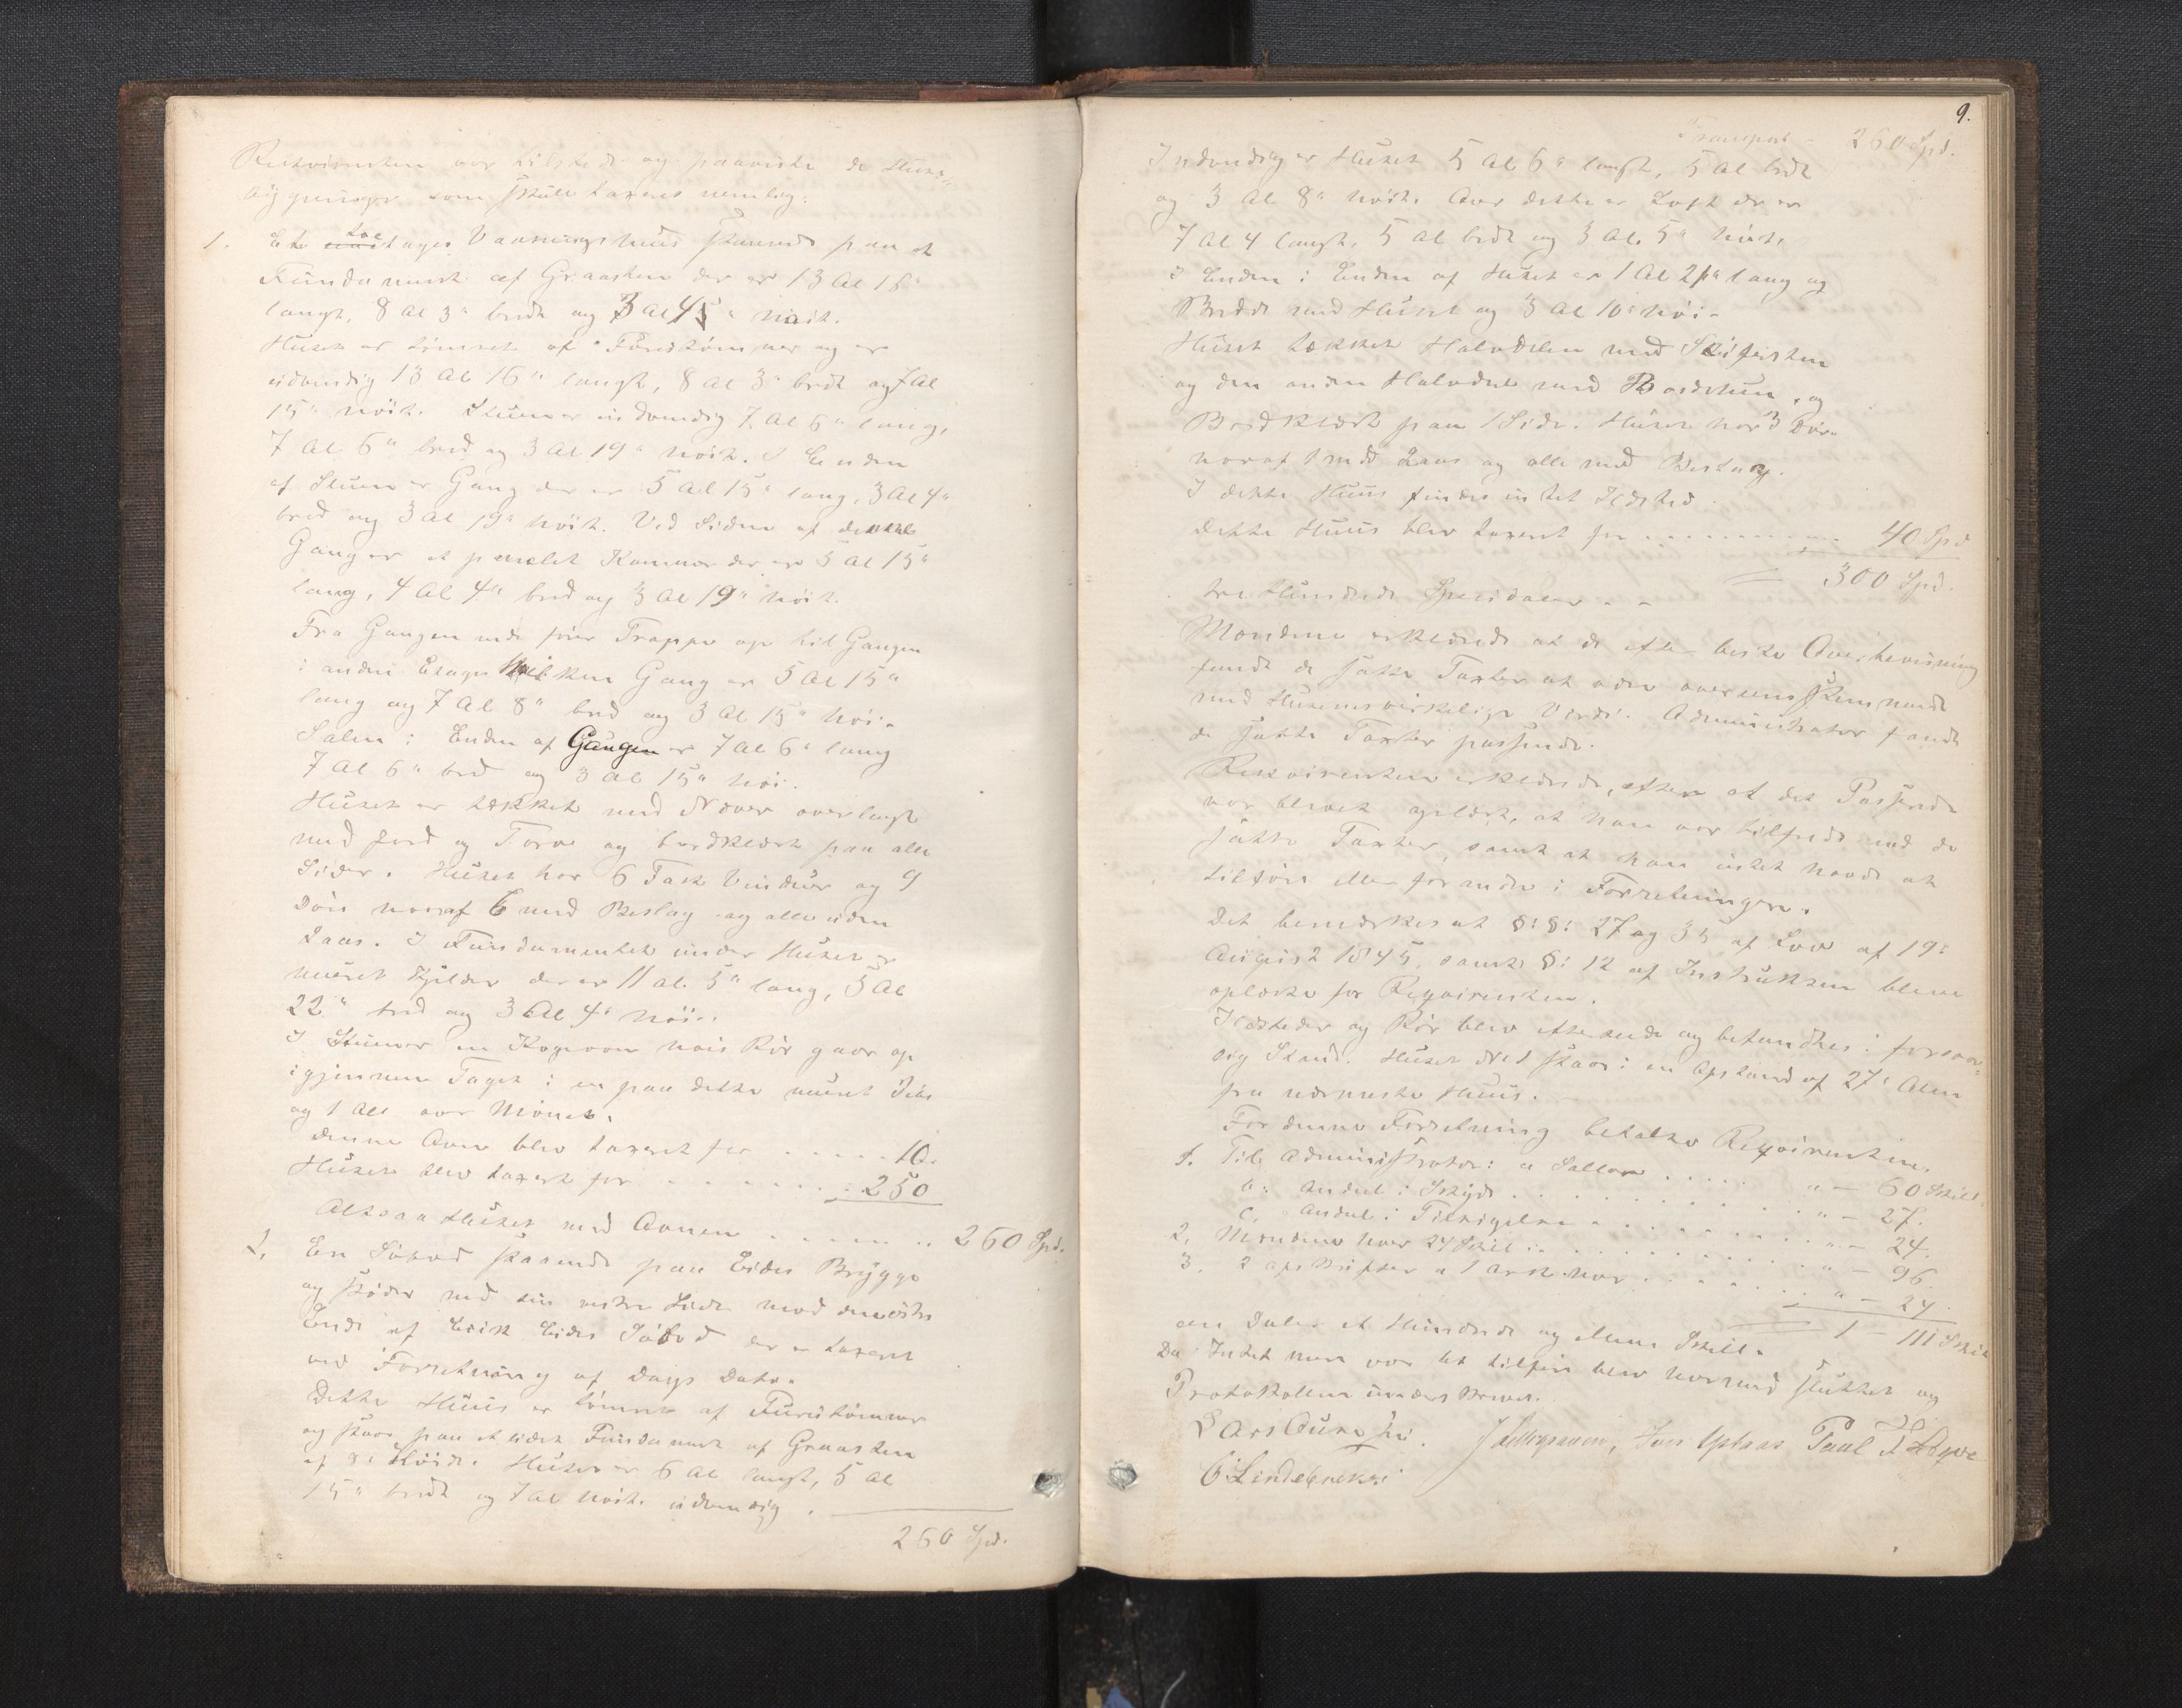 Rekvirenten var tilstede og paaviste de Huus-
bygninger som skulle taxeres nemlig:
1. Et toetages Vaaningshuus staaende paa et
Fundament af Graasten der er 13 Al 16"
langt, 8 Al 3" bredt og 3 Al 4" høit.
Huset er tømret af Furutømmer og er
udvendig 13 Al 16" langt, 8 Al 3" bredt og 7 Al
15" høit. Stuen er indvendig 7 Al 6" lang,
7 Al 6" bred og 3 Al 19" høit. I Enden
af Stuen er Gang der er 5 Al 15" lang, 3 Al 4"
bred og 3 Al 19" høit. Ved Siden af denne
Gang er et panelet Kammer der er 5 Al 15"
lang, 4 Al 4" bred og 3 Al 19" høit.
Fra Gangen nede fører Trappe op til Gangen
i anden Etage hvilken Gang er 5 Al 15"
lang og 7 Al 8" bred og 3 Al 15" høi.
Salen i Enden af Gangen er 7 Al 6" lang
7 Al 6" bred og 3 Al 15" høi.
Huset er tækket med Næver overlagt
med Jord og Torv og bordklædt paa alle
Sider. Huset har 6 Fask Vinduer og 9
Døre hvoraf 6 med Beslag og alle uden
Laas. I Fundamentet under Huset er
muret Kjelder der er 11 al. 5" lang, 5 Al
22" bred og 3 Al 4" høi.
I Stuen er en Kogeovn hvis Rør gaar op
igjennem Taget i en paa dette muret Pibe
og 1 Al over Mønet.
Denne Ovn blev taxeret for . . . . . 10.
Huset blev taxert for . . . . . . . . 250
Altsaa Huset med Ovnen . . . . . . . 260 Spd.
2. En Søbod staaende paa Eides Brygge
og støder med sin vestre Side mod den østre
Ende af Erik Eides Søbod der er taxeret
ved Forretning af Dags Dato.
Dette Huus er tømret af Furutømmer
og staar paa et lidet Fundament af Graasten
af 8" Høide. Huset er 6 Al langt, 5 Al
15" bredt og 7 Al høit udvendig.
260 Spd.
9.
Transport - 260 Spd.
Indvendig er Huset 5 Al 6" langt, 5 Al bredt
og 3 Al 8" høit. Over dette er Loft der er
7 Al 4 langt, 5 Al bredt og 3 Al. 5" høit,
i Enden af Huset er 1 Al 21" lang og
Bredde med Huset og 3 Al 10" høi.
Huset tækket Halvdelen med Skifersten
og den anden Halvdel med Bordthun, og
Bordklædt paa 1 Side. Huset har 3 Døre
hvoraf 1 med Laas og alle med Beslag.
I dette Huus findes intet Ildsted.
Dette Huus blev taxeret for . . . . . . . . 40 Spd
300 Spd.
tre Hundrede Speciedaler - -
Mændene erklærede at de efter bedste Overbeviisning
fandt de satte Taxter at være overensstemmende
med Husenes virkelige Værdi. Administrator fandt
de satte Taxter passende.
Rekvirenten erklærede, efter at det Passerede
var blevet oplæst, at han var tilfreds med de
satte Taxter, samt at han intet havde at
tilføie eller forandre i Forretningen.
Det bemærkes at §:§: 27 og 35 af Lov af 19:
August 1845, samt §: 12 af Instruksen bleve
oplæste for Reqvirenten.
Ildsteder og Rør blev efterseede og befandtes i forsvar-
lig Stand. Huset No 1 staar i en Afstand af 27" Alen
fra nærmeste Huus.
For denne Forretning betalte Reqvirenten.
1. Til Administrator: a Sallær . . . . . " - 60 Skill
b: Andel i Skyds . . . . . . . . . . " - 27.
c, Andel i Tilsigelse . . . . . . . . " - 24.
2. Mændene hver 24 Skill . . . . . . . . " - 96.
3. 2 afskrifter a 1 ark hver . . . . . . " - 24.
1 - 111 Skill
een Daler et Hundrede og elleve Skill.
Da Intet mere var at tilføie blev hermed sluttet og
Protokollen underskreven.